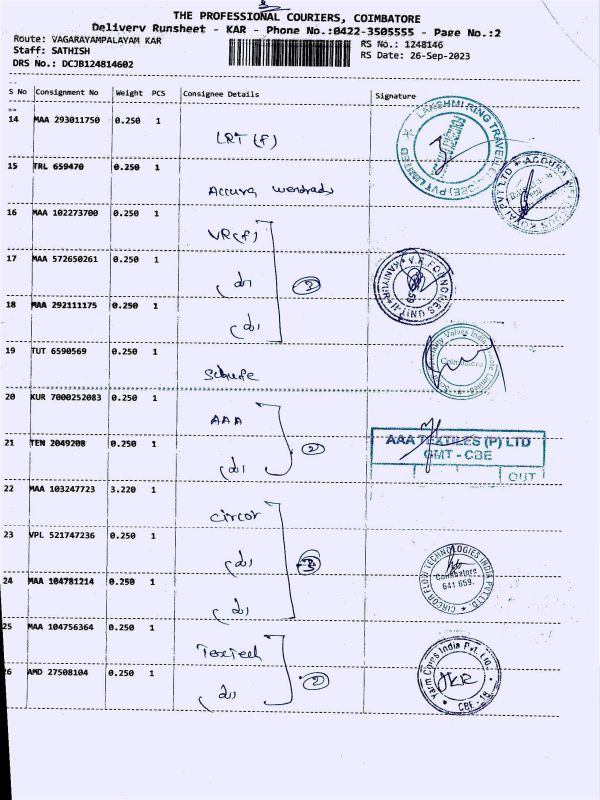 THE PROFESSIONAL COURIERS, COIMBATORE
Delivery Runsheet - KAR - Phone No.:0422-3505555 - Page No.:2
Route: VAGARAYAMPALAYAM KAR
RS No.: 1248146
Staff: SATHISH
RS Date: 26-Sep-2023
DRS No.: DCJB124814602
S No Consignment No Weight PCS Consignee Details Signature
14 MAA 293011750 0.250 1
LRT (P)
15 TRL 659470 0.250 1
Accura
16 MAA 102273700 0.250 1
VR(P)
17 MAA 572650261 0.250 1
do 3
18 MAA 292111175 0.250 1
do
V.R.FOUNDRIES UNIT-II
19 TUT 6590569 0.250 1
Coimbatore
20 KUR 7000252083 0.250 1
AAA
21 TEN 2049208 0.250 1
do 2
AAA TEXTILES (P) LTD
GMT - CBE
OUT
22 MAA 103247723 3.220 1
Circor
23 VPL 521747236 0.250 1
do 3
24 MAA 104781214 0.250 1
do
CIRCOR FLOW TECHNOLOGIES INDIA PVT LTD.
Coimbatore
641 659.
25 MAA 104756364 0.250 1
TexTech
26 AMD 27508104 0.250 1
do 2
Yarm Coms India Pvt. Ltd.
JKR
CBE - 18